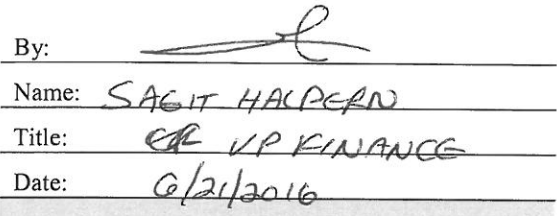 By:
Name: SAGIT HALPERN
Title: VP FINANCE
Date: 6/21/2016